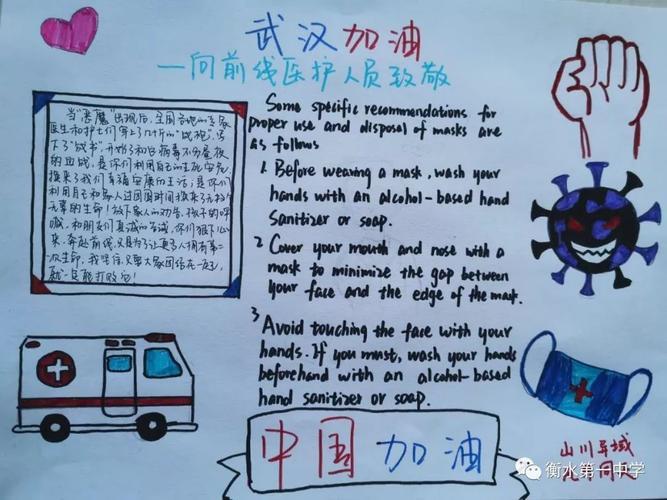 武汉加油
一向前线医护人员致敬
当"恶魔"出现后，全国各地的专家
医生和护士们穿上了几斤的"战袍"，写
下了"战书"，开始了和日病毒不分昼夜
的血战，是你们利用自己的生死安危
换来了我们幸福安康的生活；是你们
利用自己和家人过团圆时间换来了无数
无辜的生命！放下家人的劝告，孩子的呼
喊，和朋友们真诚的告诫，你们狠下心
来，奔赴前线，只是为了让更多人拥有第二
次生命，我坚信，只要大家团结在一起，
就一定能打败它！
Some specific recommendations for
proper use and disposal of masks are
as follows
1. Before wearing a mask, wash your
hands with an alcohol-based hand
sanitizer or soap.
2 Cover your mouth and nose with a
mask to minimize the gap between
your face and the edge of the mask.
3 Avoid touching the face with your
hands. If you must, wash your hands
beforehand with an alcohol-based
hand sanitizer or soap.
中国加油
山川异域
衡水第一中学